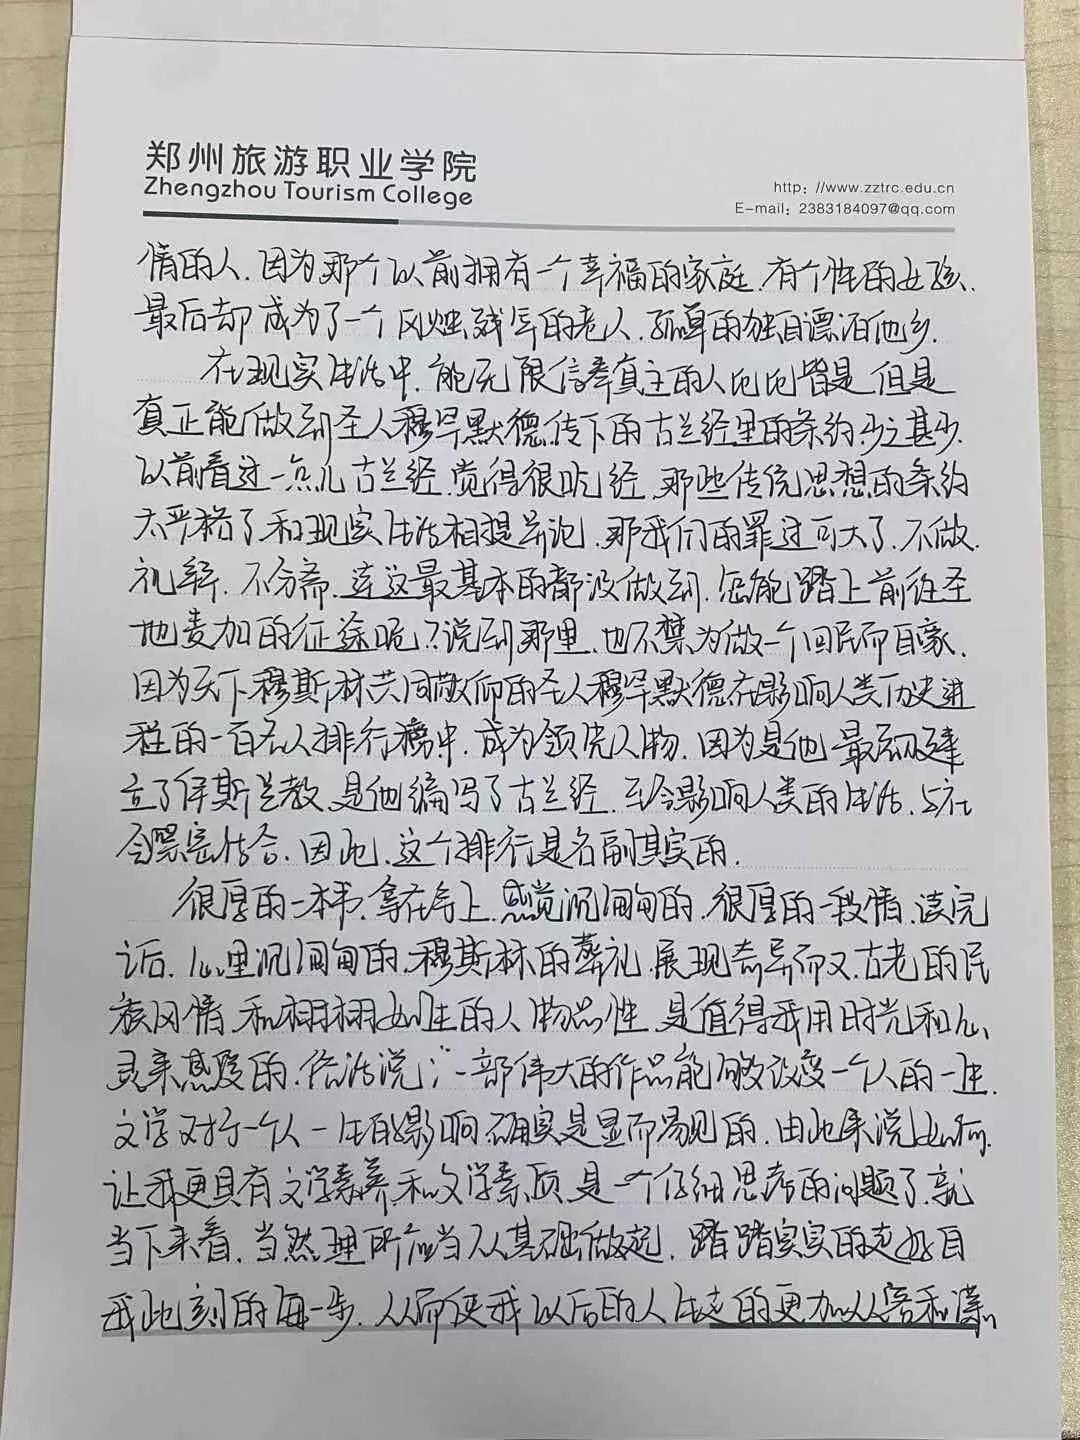 郑州旅游职业学院
Zhengzhou Tourism College
http: //www.zztrc.edu.cn
E-mail: 2383184097@qq.com
情的人.因为那个以前拥有一个幸福的家庭.有个性的女孩.
最后却成为了一个风烛残年的老人.孤单的独自漂泊他乡.
在现实生活中.能无限信奉真主的人比比皆是但是
真正能做到圣人穆罕默德传下的古兰经里的条约.少之甚少.
以前看过一点儿古兰经.觉得很吃经.那些传统思想的条约
太严格了.和现实生活相提并论.那我们的罪过可大了.不做.
礼拜.不分斋.连这最基本的都没做到.怎能踏上前往圣
地麦加的征途呢?说到那里.也不禁为做一个回民而自豪.
因为天下穆斯林共同敬仰的圣人穆罕默德在影响人类历史进
程的一百名人排行榜中.成为领先人物.因为是他最初建
立了伊斯兰教.是他编写了古兰经.至今影响人类的生活.与社
会紧密结合.因此.这个排行是名副其实的.
很厚的一本书.拿在手上.感觉沉甸甸的.很厚的一段情.读完
过后.心里沉甸甸的.穆斯林的葬礼.展现奇异而又古老的民
族风情.和栩栩如生的人物品性.是值得我用时光和心
灵来感受的.俗话说:"一部伟大的作品能够改变一个人的一生.
文学对于一个人一生的影响确实是显而易见的.由此来说如何.
让我更具有文学素养.和文学素质.是一个仔细思考的问题了.就
当下来看.当然理所应当从基础做起.踏踏实实的走好自
我此刻的每一步.从而使我以后的人生走的更加从容和漂